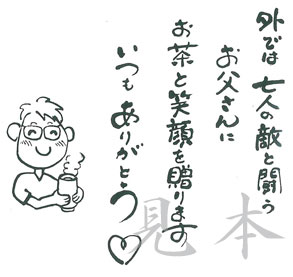 外では七人の敵と闘う
お父さんに
お茶と笑顔を贈ります
いつもありがとう♡
見本